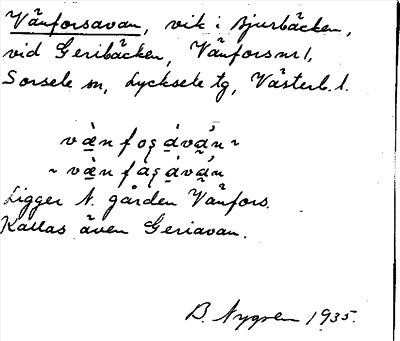 Vänforsavan, vik i Bjurbäcken,
vid Geribäcken, Vänfors nr 1,
Sorsele sn, Lycksele tg, Västerb. l.
vὰ̱n foş áván ~
~ vὰ̱n fàşáván
Ligger N. gården Vänfors.
Kallas även Geriavan.
B. Nygren 1935.